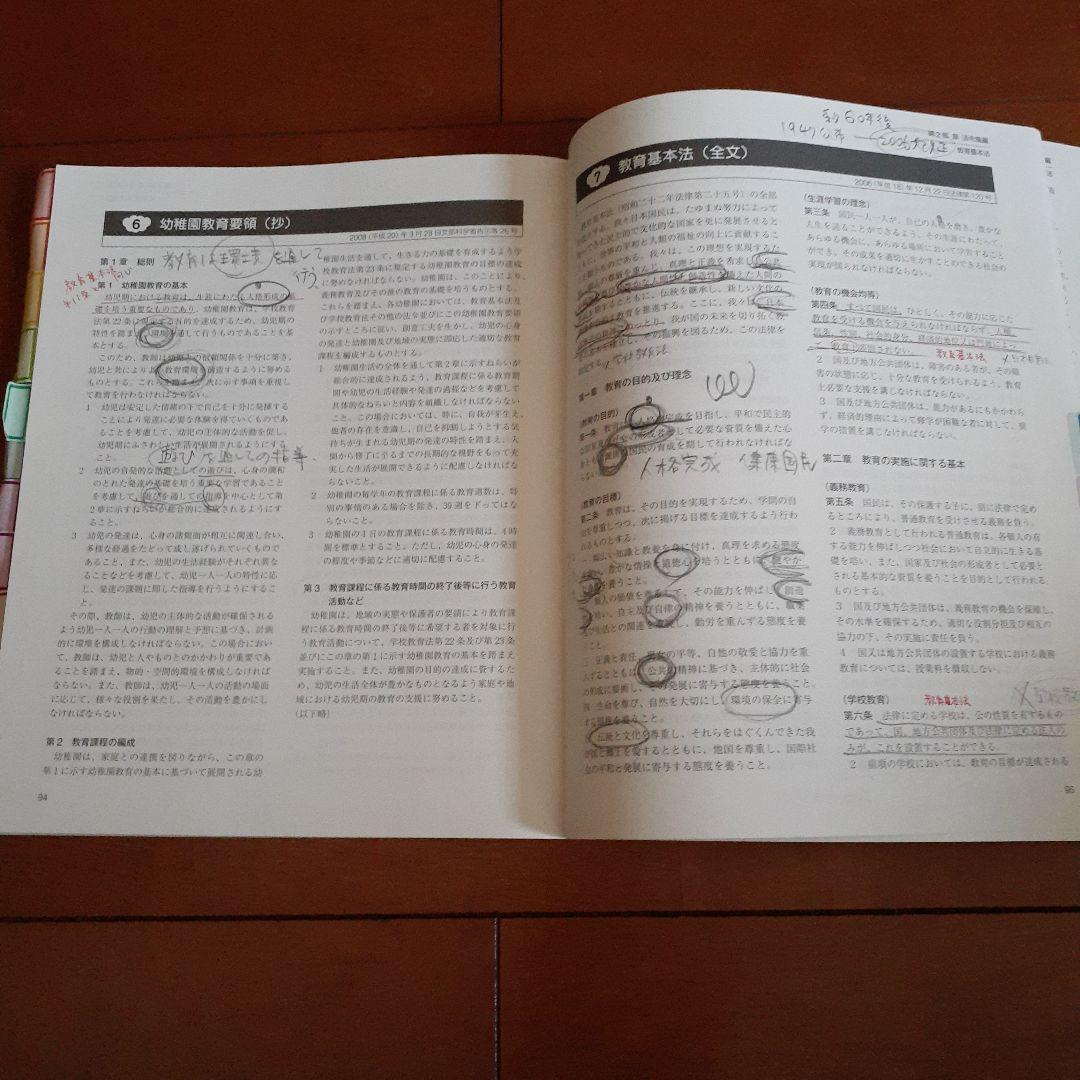 6 幼稚園教育要領（抄）
2008（平成20）年3月28日文部科学省告示第26号
第1章 総則
教育は環境を通して
行う
教育基本法
第11条
第1 幼稚園教育の基本
幼児期における教育は、生涯にわたる人格形成の基
礎を培う重要なものであり、幼稚園教育は、学校教育
法第22条に規定する目的を達成するため、幼児期の
特性を踏まえ、環境を通して行うものであることを基
本とする。
このため、教師は幼児との信頼関係を十分に築き、
幼児と共によりよい教育環境を創造するように努める
ものとする。これらを踏まえ、次に示す事項を重視し
て教育を行わなければならない。
1 幼児は安定した情緒の下で自己を十分に発揮する
ことにより発達に必要な体験を得ていくものであ
ることを考慮して、幼児の主体的な活動を促し、
幼児期にふさわしい生活が展開されるようにする
こと。
遊びを通しての指導
2 幼児の自発的な活動としての遊びは、心身の調和
のとれた発達の基礎を培う重要な学習であること
を考慮して、遊びを通しての指導を中心として第
2章に示すねらいが総合的に達成されるようにす
ること。
3 幼児の発達は、心身の諸側面が相互に関連し合い、
多様な経過をたどって成し遂げられていくもので
あること、また、幼児の生活経験がそれぞれ異な
ることなどを考慮して、幼児一人一人の特性に応
じ、発達の課題に即した指導を行うようにするこ
と。
その際、教師は、幼児の主体的な活動が確保される
よう幼児一人一人の行動の理解と予想に基づき、計画
的に環境を構成しなければならない。この場合におい
て、教師は、幼児と人やものとのかかわりが重要であ
ることを踏まえ、物的・空間的環境を構成しなければ
ならない。また、教師は、幼児一人一人の活動の場面
に応じて、様々な役割を果たし、その活動を豊かにし
なければならない。
第2 教育課程の編成
幼稚園は、家庭との連携を図りながら、この章の
第1に示す幼稚園教育の基本に基づいて展開される幼
94
稚園生活を通して、生きる力の基礎を育成するよう学
校教育法第23条に規定する幼稚園教育の目標の達成
に努めなければならない。幼稚園は、このことにより、
義務教育及びその後の教育の基礎を培うものとする。
これらを踏まえ、各幼稚園においては、教育基本法及
び学校教育法その他の法令並びにこの幼稚園教育要領
の示すところに従い、創意工夫を生かし、幼児の心身
の発達と幼稚園及び地域の実態に即応した適切な教育
課程を編成するものとする。
1 幼稚園生活の全体を通して第2章に示すねらいが
総合的に達成されるよう、教育課程に係る教育期
間や幼児の生活経験や発達の過程などを考慮して
具体的なねらいと内容を組織しなければならない
こと。この場合においては、特に、自我が芽生え、
他者の存在を意識し、自己を抑制しようとする気
持ちが生まれる幼児期の発達の特性を踏まえ、入
園から修了に至るまでの長期的な視野をもって充
実した生活が展開できるように配慮しなければな
らないこと。
2 幼稚園の毎学年の教育課程に係る教育週数は、特
別の事情のある場合を除き、39週を下ってはな
らないこと。
3 幼稚園の1日の教育課程に係る教育時間は、4時
間を標準とすること。ただし、幼児の心身の発達
の程度や季節などに適切に配慮すること。
第3 教育課程に係る教育時間の終了後等に行う教育
活動など
幼稚園は、地域の実態や保護者の要請により教育課
程に係る教育時間の終了後等に希望する者を対象に行
う教育活動について、学校教育法第22条及び第23条
並びにこの章の第1に示す幼稚園教育の基本を踏まえ
実施すること。また、幼稚園の目的の達成に資するた
め、幼児の生活全体が豊かなものとなるよう家庭や地
域における幼児期の教育の支援に努めること。
（以下略）
約60年後
1947公布
2006大改正
教育基本法
7 教育基本法（全文）
2006（平成18）年12月22日法律第120号
教育基本法（昭和二十二年法律第二十五号）の全部
我々日本国民は、たゆまぬ努力によって
築いてきた民主的で文化的な国家を更に発展させると
ともに、世界の平和と人類の福祉の向上に貢献すること
我々は、この理想を実現するた
め、個人の尊厳を重んじ、真理と正義を希求し、公共
の精神を尊び、豊かな人間性と創造性を備えた人間の
育成を期するとともに、伝統を継承し、新しい文化の
教育を推進する。ここに、我々は、日本
我が国の未来を切り拓く教
その振興を図るため、この法律を
学校教育法
第一章 教育の目的及び理念
（教育の目的）
第一条 教育は、人格の完成を目指し、平和で民主的
な国家及び社会の形成者として必要な資質を備えた心
身ともに健康な国民の育成を期して行われなければな
らない。
人格完成 健康国民
（教育の目標）
第二条 教育は、その目的を実現するため、学問の自
由を尊重しつつ、次に掲げる目標を達成するよう行わ
れるものとする。
一 幅広い知識と教養を身に付け、真理を求める態度
を養い、豊かな情操と道徳心を培うとともに、健やか
な身体を養うこと。
二 個人の価値を尊重して、その能力を伸ばし、創造
性を培い、自主及び自律の精神を養うとともに、職業
及び生活との関連を重視し、勤労を重んずる態度を養
うこと。
三 正義と責任、男女の平等、自他の敬愛と協力を重
んずるとともに、公共の精神に基づき、主体的に社会
の形成に参画し、その発展に寄与する態度を養うこと
四 生命を尊び、自然を大切にし、環境の保全に寄与
する態度を養うこと。
五 伝統と文化を尊重し、それらをはぐくんできた我
が国と郷土を愛するとともに、他国を尊重し、国際社
会の平和と発展に寄与する態度を養うこと。
（生涯学習の理念）
第三条 国民一人一人が、自己の人格を磨き、豊かな
人生を送ることができるよう、その生涯にわたって、
あらゆる機会に、あらゆる場所において学習すること
ができ、その成果を適切に生かすことのできる社会の
実現が図られなければならない。
（教育の機会均等）
第四条 すべて国民は、ひとしく、その能力に応じた
教育を受ける機会を与えられなければならず、人種、
信条、性別、社会的身分、経済的地位又は門地によっ
て、教育上差別されない。
教育基本法
2 国及び地方公共団体は、障害のある者が、その障
害の状態に応じ、十分な教育を受けられるよう、教育
上必要な支援を講じなければならない。
3 国及び地方公共団体は、能力があるにもかかわら
ず、経済的理由によって修学が困難な者に対して、奨
学の措置を講じなければならない。
第二章 教育の実施に関する基本
（義務教育）
第五条 国民は、その保護する子に、別に法律で定め
るところにより、普通教育を受けさせる義務を負う。
2 義務教育として行われる普通教育は、各個人の有
する能力を伸ばしつつ社会において自立的に生きる基
礎を培い、また、国家及び社会の形成者として必要と
される基本的な資質を養うことを目的として行われる
ものとする。
3 国及び地方公共団体は、義務教育の機会を保障し、
その水準を確保するため、適切な役割分担及び相互の
協力の下、その実施に責任を負う。
4 国又は地方公共団体の設置する学校における義務
教育については、授業料を徴収しない。
（学校教育） 教育基本法
第六条 法律に定める学校は、公の性質を有するもの
であって、国、地方公共団体及び法律に定める法人の
みが、これを設置することができる。
2 前項の学校においては、教育の目標が達成される
95